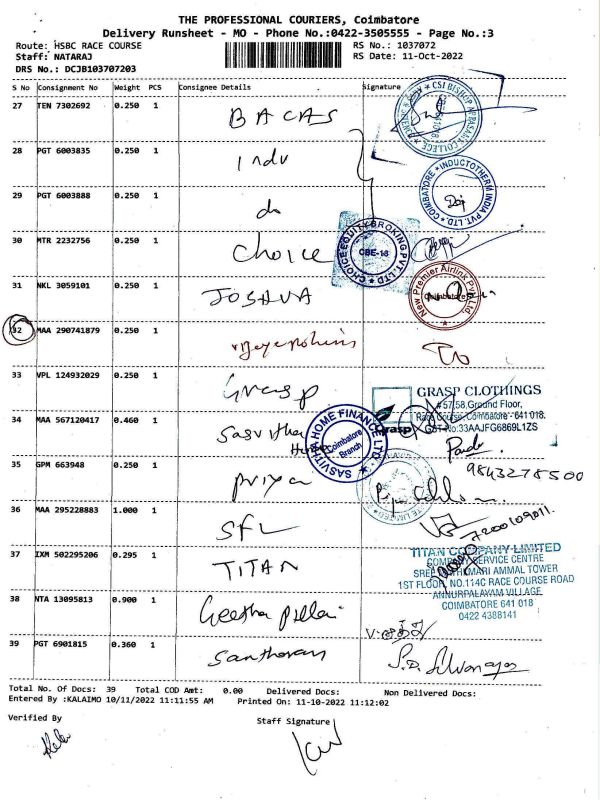 THE PROFESSIONAL COURIERS, Coimbatore
Delivery Runsheet - MO - Phone No.:0422-3505555 - Page No.:3
Route: HSBC RACE COURSE
RS No.: 1037072
Staff: NATARAJ
RS Date: 11-Oct-2022
DRS No.: DCJB103707203
S No Consignment No Weight PCS Consignee Details Signature
27 TEN 7302692 0.250 1 BACAS
CSI BISHOP APPASAMY COLLEGE
28 PGT 6003835 0.250 1 Indu
INDUCTOTHERM INDIA PVT. LTD. COIMBATORE
29 PGT 6003888 0.250 1 do
30 MTR 2232756 0.250 1 Choice
CHOICE EQUITY BROKING PVT. LTD
CBE-18
31 NKL 3059101 0.250 1 JOSHUA
New Premier Airlink Pvt Ltd
Coimbatore
32 MAA 290741879 0.250 1
33 VPL 124932029 0.250 1 Grasp
GRASP CLOTHINGS
#57,58, Ground Floor,
Race Course, Coimbatore - 641 018.
GST No:33AAJFG6869L1ZS
Grasp
34 MAA 567120417 0.460 1 Sasvitha
Home
SASVITHA HOME FINANCE LTD
Coimbatore
Branch
9843278500
35 GPM 663948 0.250 1 Priya
36 MAA 295228883 1.000 1 SFL
7200109011.
37 IXM 502295206 0.295 1 TITAN
TITAN COMPANY LIMITED
COMPANY SERVICE CENTRE
AMMAL TOWER
1ST FLOOR, NO.114C RACE COURSE ROAD
ANNUPPALAYAM VILLAGE
COIMBATORE 641 018
0422 4388141
38 NTA 13095813 0.900 1 Geetha Pillai
39 PGT 6901815 0.360 1 Santhoram
Total No. Of Docs: 39 Total COD Amt: 0.00 Delivered Docs: Non Delivered Docs:
Entered By :KALAIMO 10/11/2022 11:11:55 AM Printed On: 11-10-2022 11:12:02
Verified By
Staff Signature